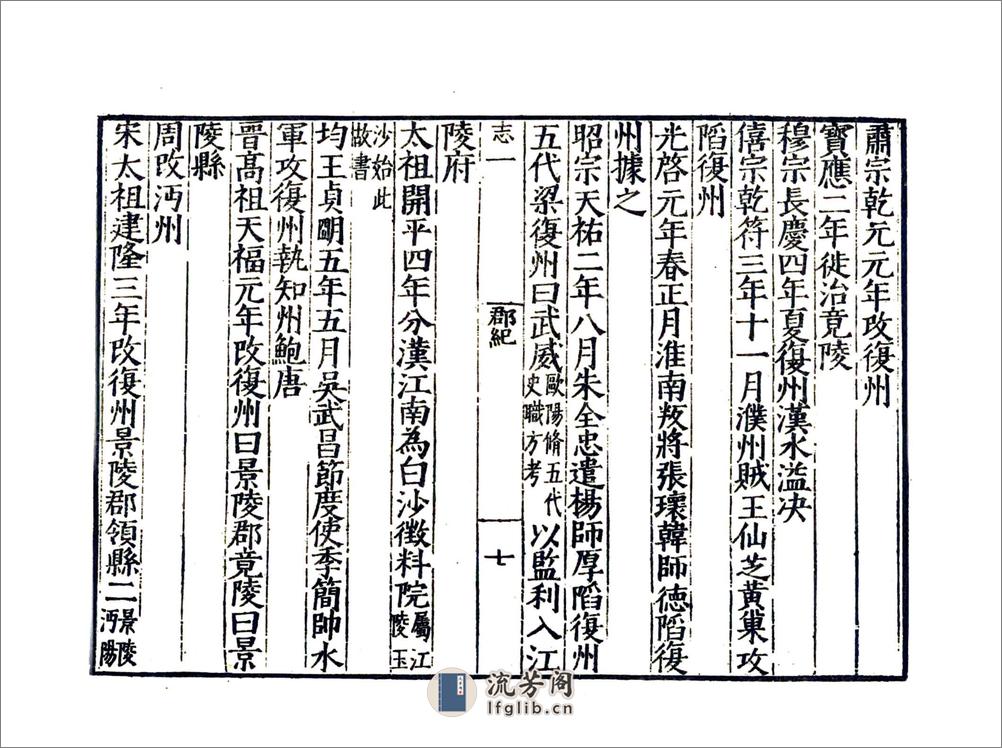 肅宗乾元元年改復州
寶應二年徙治竟陵
穆宗長慶四年夏復州漢水溢決
僖宗乾符三年十一月濮州賊王仙芝黃巢攻
陷復州
光啓元年春正月淮南叛將張瓌韓師德陷復
州據之
昭宗天祐二年八月朱全忠遣楊師厚陷復州
五代梁復州曰武威歐陽脩五代史職方考以監利入江
志一 郡紀 七
陵府
太祖開平四年分漢江南為白沙徵料院屬江陵玉
沙始此故書
均王貞明五年五月吳武昌節度使李簡帥水
軍攻復州執知州鮑唐
晋高祖天福元年改復州曰景陵郡竟陵曰景
陵縣
周改沔州
宋太祖建隆三年改復州景陵郡領縣二景陵沔陽
流芳阁
lfglib.cn